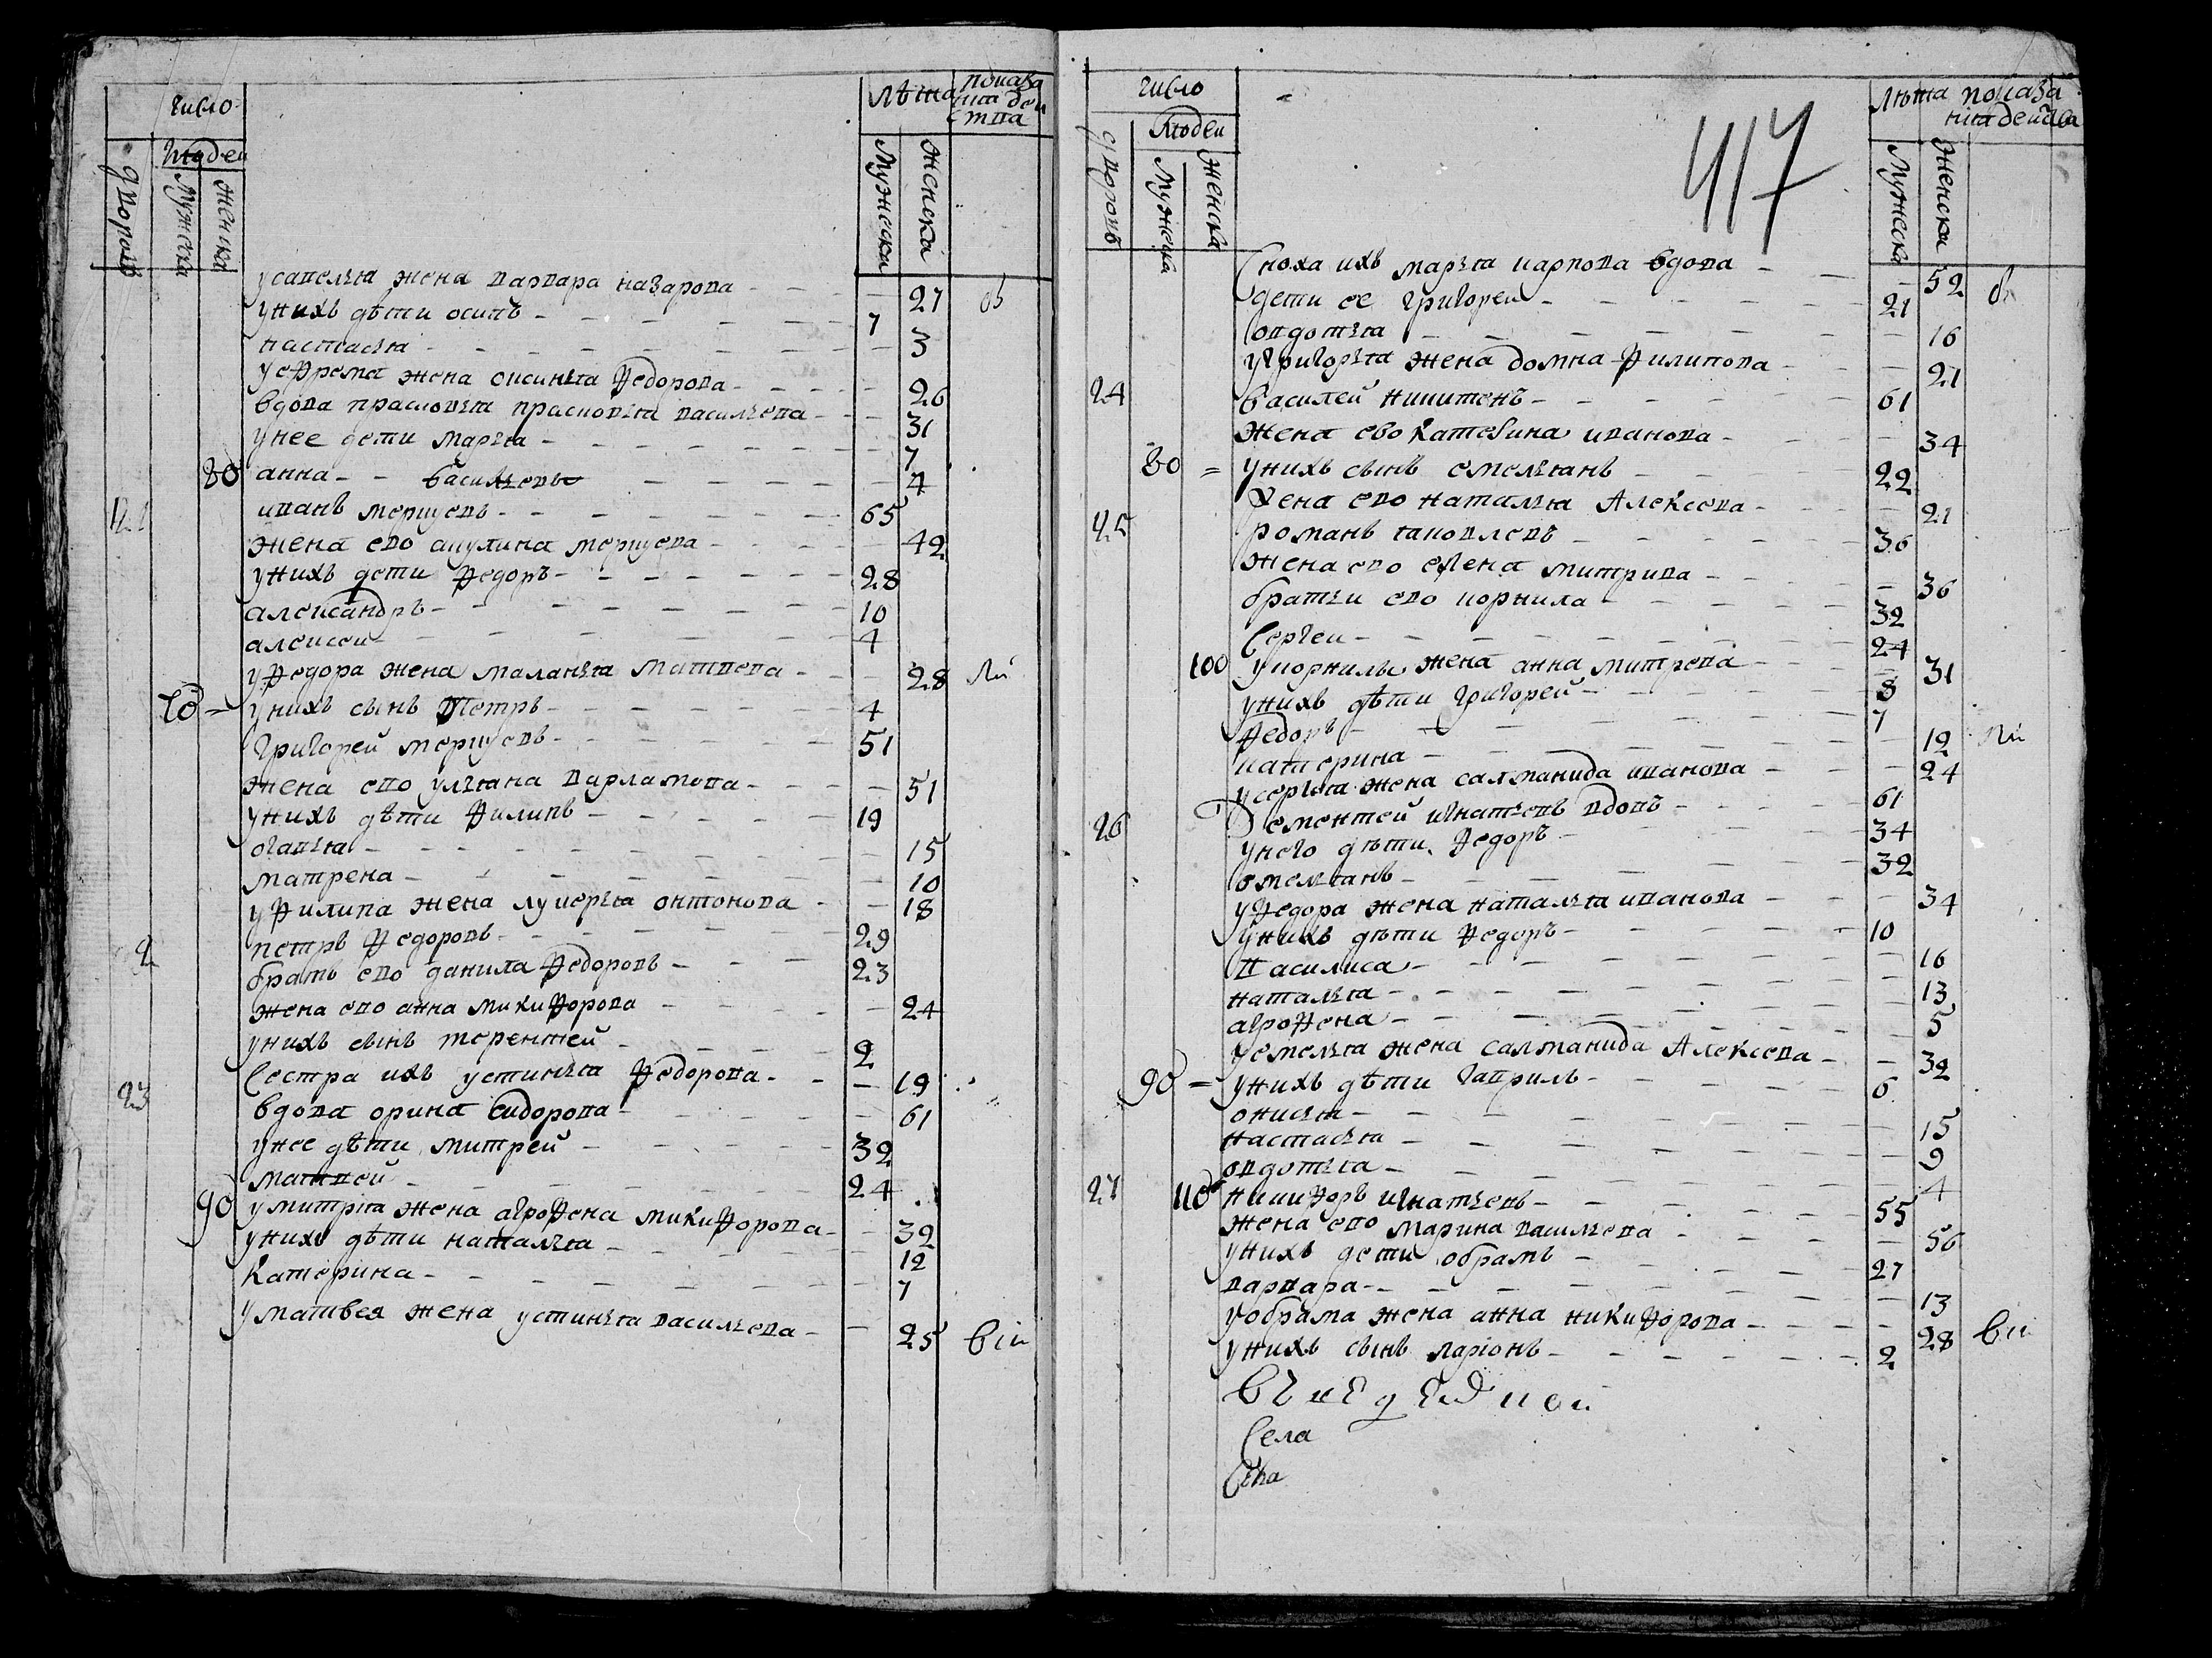 число лѣта показа
людеи ния деи
ства
дворовъ мужеска женска мужеска женска
усавелья жена варвара назарова - 27 об
унихъ дѣти осипъ - 7
настасья - 3
уефрема жена оксинья федорова - 26
вдова прасковья прасковья васильева - 31
унее дети марья - 7
80 анна - васильевъ - 4
иванъ меркуевъ - 65
жена ево акулина меркуева - 42
унихъ дети федоръ - 28
александръ - 10
алексеи - 4
уфедора жена маланья матвеева - 28 ли
70 = унихъ сынъ петръ - 4
григореи меркуевъ - 51
жена ево ульяна варламова - 51
унихъ дѣти филипъ - 19
огапья - 15
матрена - 10
уфилипа жена лукерья онтонова - 18
2 петръ федоровъ - 29
братъ ево данила федоровъ - 23
жена ево анна микифорова - 24
унихъ сынъ терентей - 2
сестра ихъ устинья федорова - 19
23 вдова орина сидорова - 61
унее дѣти митрей - 32
матвей - 24
90 умитрия жена агрофена микифорова - 32
унихъ дѣти наталья - 12
катерина - 7
уматвея жена устинья васильева - 25 віи
417
число лѣта показа
людеи ния деиства
дворовъ мужеска женска мужеска женска
сноха ихъ марья карпова вдова - 52
дети ее григореи - 21
овдотья - 16
угригорья жена домна филипова - 21
24 василей никитенъ - 61
жена ево катерина иванова - 34
80 = унихъ сынъ емельянъ - 22
жена ево наталья алексева - 21
25 романъ яковлевъ - 36
жена ево елена митрива - 36
братьи ево корнила - 32
сергеи - 24
100 укорнилы жена анна митрева - 31
унихъ дѣти григорей - 8
федоръ - 7
катерина - 12 ли
усергья жена салманида иванова - 24
26 дементей игнатьевъ вдовъ - 61
унего дѣти федоръ - 34
омельянъ - 32
уфедора жена наталья иванова - 34
унихъ дѣти федоръ - 10
василиса - 16
наталья - 13
агрофена - 5
уемелья жена салманида алексева - 32
90 = унихъ дѣти гаприлъ - 6
онисья - 15
настасья - 9
овдотья - 4
27 110 никифоръ игнатьевъ - 55
жена ево марина васильева - 56
унихъ дети обрамъ - 27
варвара - 13
уобрама жена анна никифорова - 28 віи
унихъ сынъ ларіонъ - 2
села